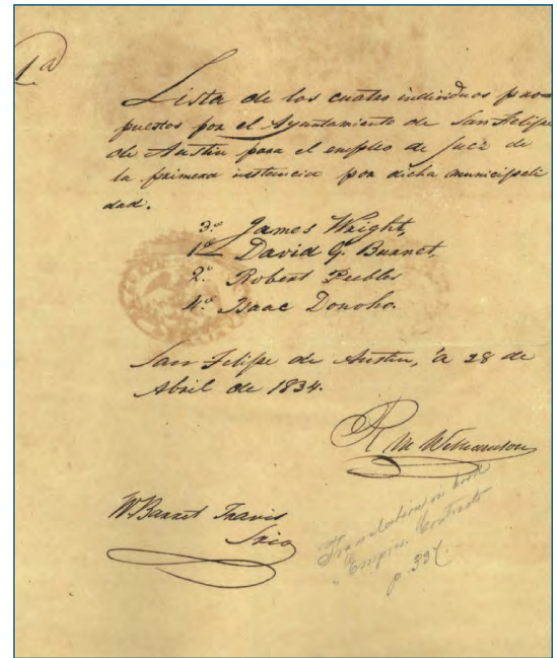 1a
Lista de los cuatro individuos pro-
puestos por el Ayuntamiento de San Felipe
de Austin para el empleo de Juez de
la primera instancia por dicha municipali
dad.
3º James Wright,
1º David G. Burnet,
2º Robert Peebles
4º Isaac Donoho.
San Felipe de Austin, á 28 de
Abril de 1834.
R M Williamson
W Barret Travis
Srio
Translation in
Empres. Contracts
p. 337.